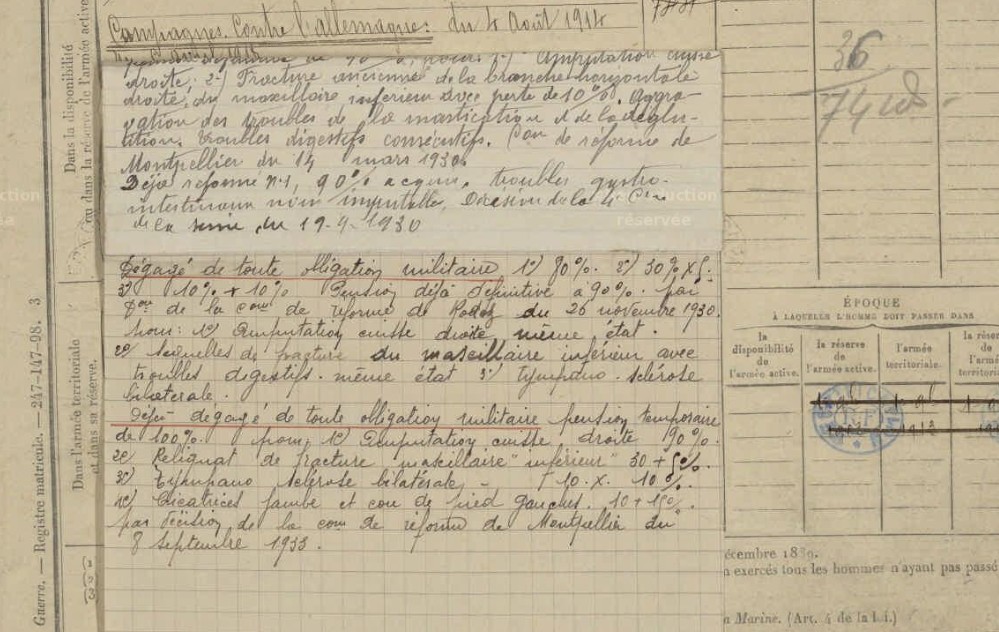 Campagnes Contre l'allemagne: du 4 Août 1914
Amputation cuisse
droite; 2º) Fracture ancienne de la branche horizontale
droite, du maxillaire inférieur avec perte de 10%. Aggra-
vation des troubles de la mastication et de la déglu-
tition. troubles digestifs consécutifs. Con de réforme de
Montpellier du 14 mars 1930.
Déjà réformé nº1, 90% acquis, troubles gastro-
intestinaux non imputable. Décision de la 4e Con
de la Seine du 19-9-1930
Dégagé de toute obligation militaire 1º) 80%. 2º) 30% x 5.
3º) 10% + 10% Pension déjà définitive à 90% par
Don de la Con de réforme de Rodez du 26 novembre 1930.
pour: 1º) Amputation cuisse droite même état.
2º) Séquelles de fracture du maxillaire inférieur avec
troubles digestifs. même état 3º) tympano-sclérose
bilatérale.
Déjà dégagé de toute obligation militaire pension temporaire
de 100% pour: 1º) Amputation cuisse, droite 90%.
2º) Reliquat de fracture maxillaire "inférieur" 30 + 5%.
3º) Tympano sclérose bilatérale, - + 10. x. 10%.
4º) Cicatrices jambe et cou de pied gauches. 10 + 15%.
par décision de la com de réforme de Montpellier du
8 Septembre 1933.
36
74
Dans la disponibilité
ou dans la réserve de l'armée active
Dans l'armée territoriale
et dans sa réserve.
Guerre. — Registre matricule. — 247-147-98. 3
(1
(2
(3
ction
ée
reproduction
réservée
ÉPOQUE
À LAQUELLE L'HOMME DOIT PASSER DANS
la
disponibilité
de
l'armée active.
la réserve
de
l'armée active.
l'armée
territoriale.
la réser
de
l'armé
territoria
1913
écembre 1889.
n exercés tous les hommes n'ayant pas passé
a Marine. (Art. 4 de la loi.)